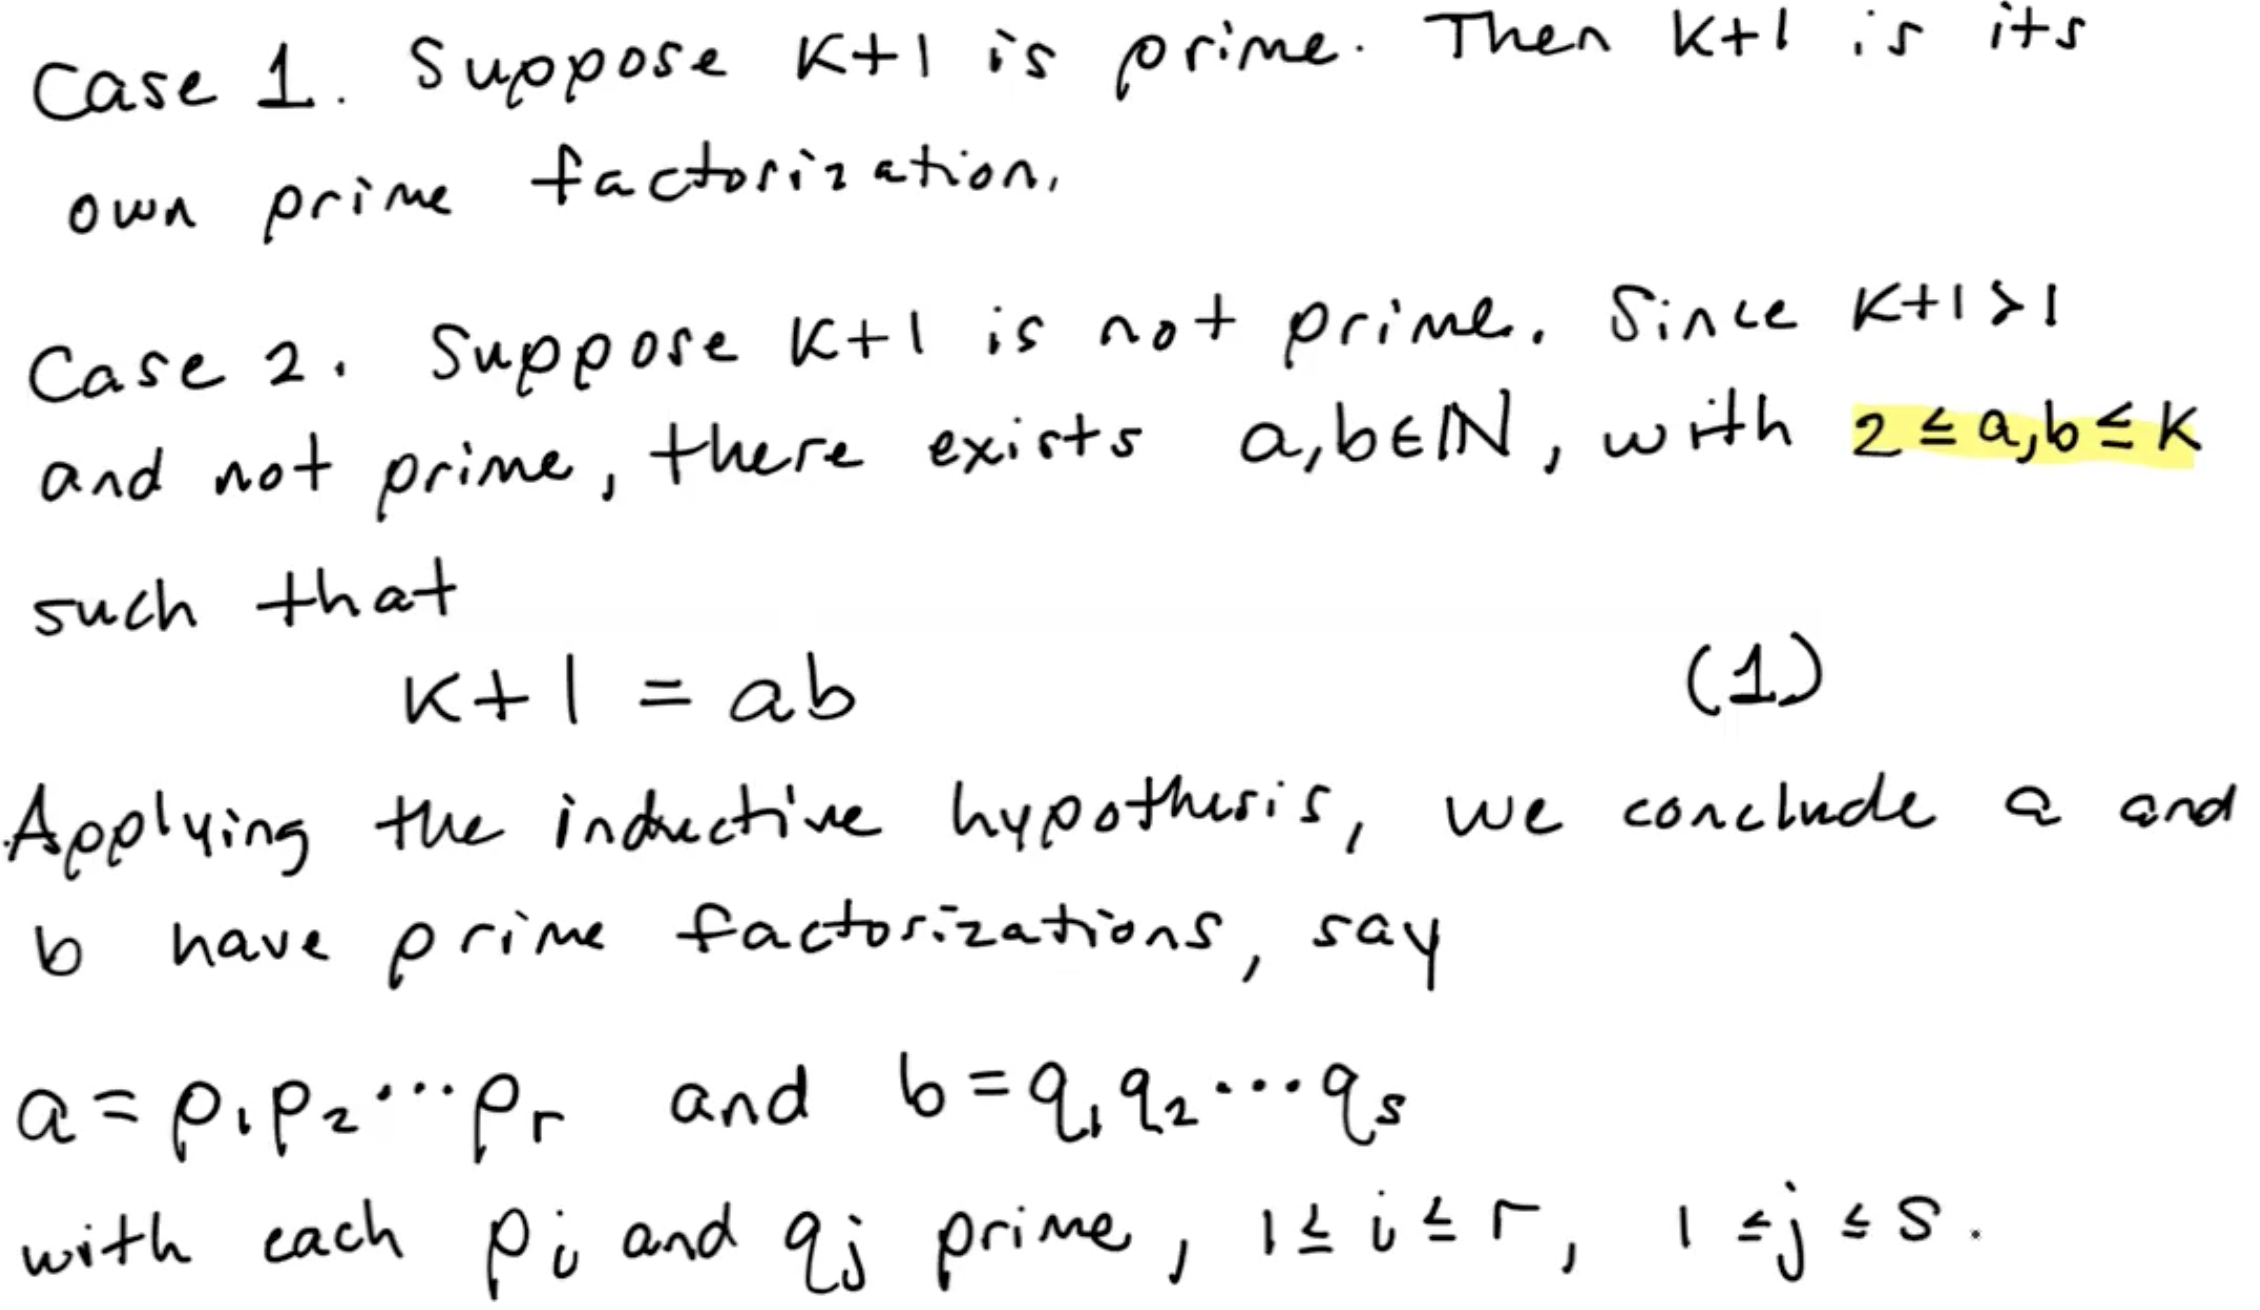 Case 1. Suppose K+1 is prime. Then K+1 is its
own prime factorization.
Case 2. Suppose K+1 is not prime. Since K+1>1
and not prime, there exists a,b∈ℕ, with 2≤a,b≤K
such that
K+1 = ab (1)
Applying the inductive hypothesis, we conclude a and
b have prime factorizations, say
a=p₁p₂⋯pᵣ and b=q₁q₂⋯qₛ
with each pᵢ and qⱼ prime, 1≤i≤r, 1≤j≤s.